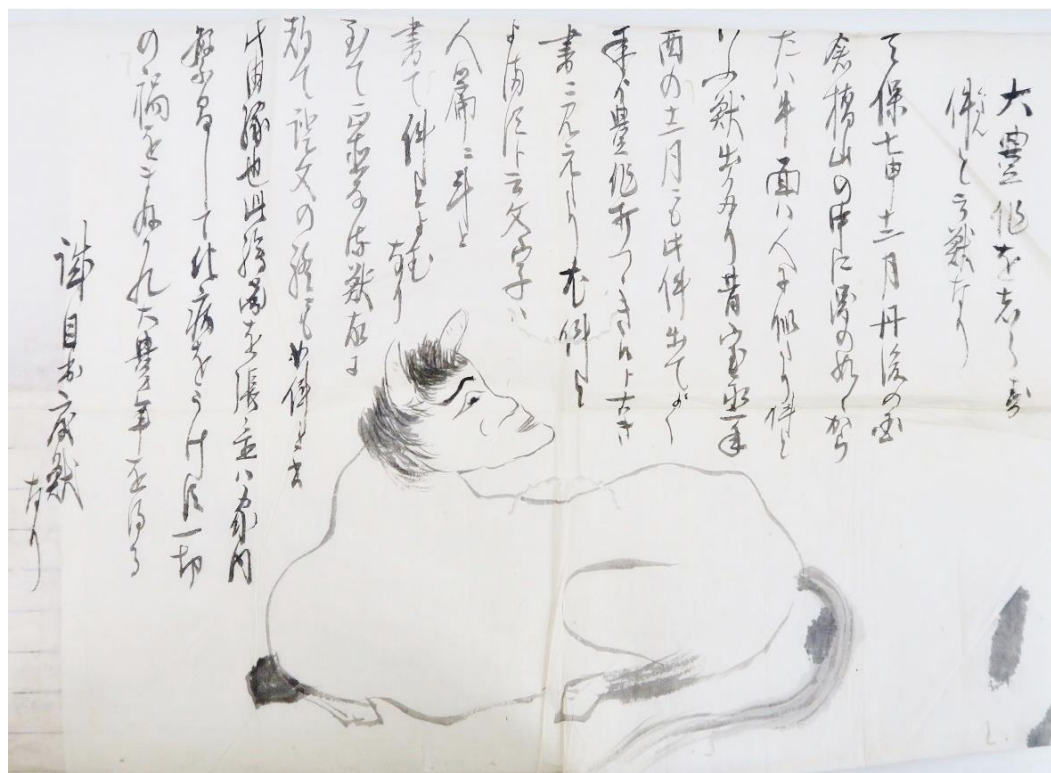 大豊作を志らす
件と云獣なり
天保七申十二月丹後の国
倉橋山の中に図の如くから
たハ牛面ハ人に似たり件と
いふ獣出たり昔宝永二年
酉の十二月にも此件出てよく
年より豊作打つゝき候ト古き
書ニ見えたり尤件と
候ト云文字ハ
人篇ニ牛と
書て件とよむなり
至て正直なる獣故に
都て證文の終にも如件と書
此由縁也此絵図を張置ハ家内
繁昌して疫病をうけ須一切
の禍をまぬかれ大豊年を得る
誠目出度獣なり